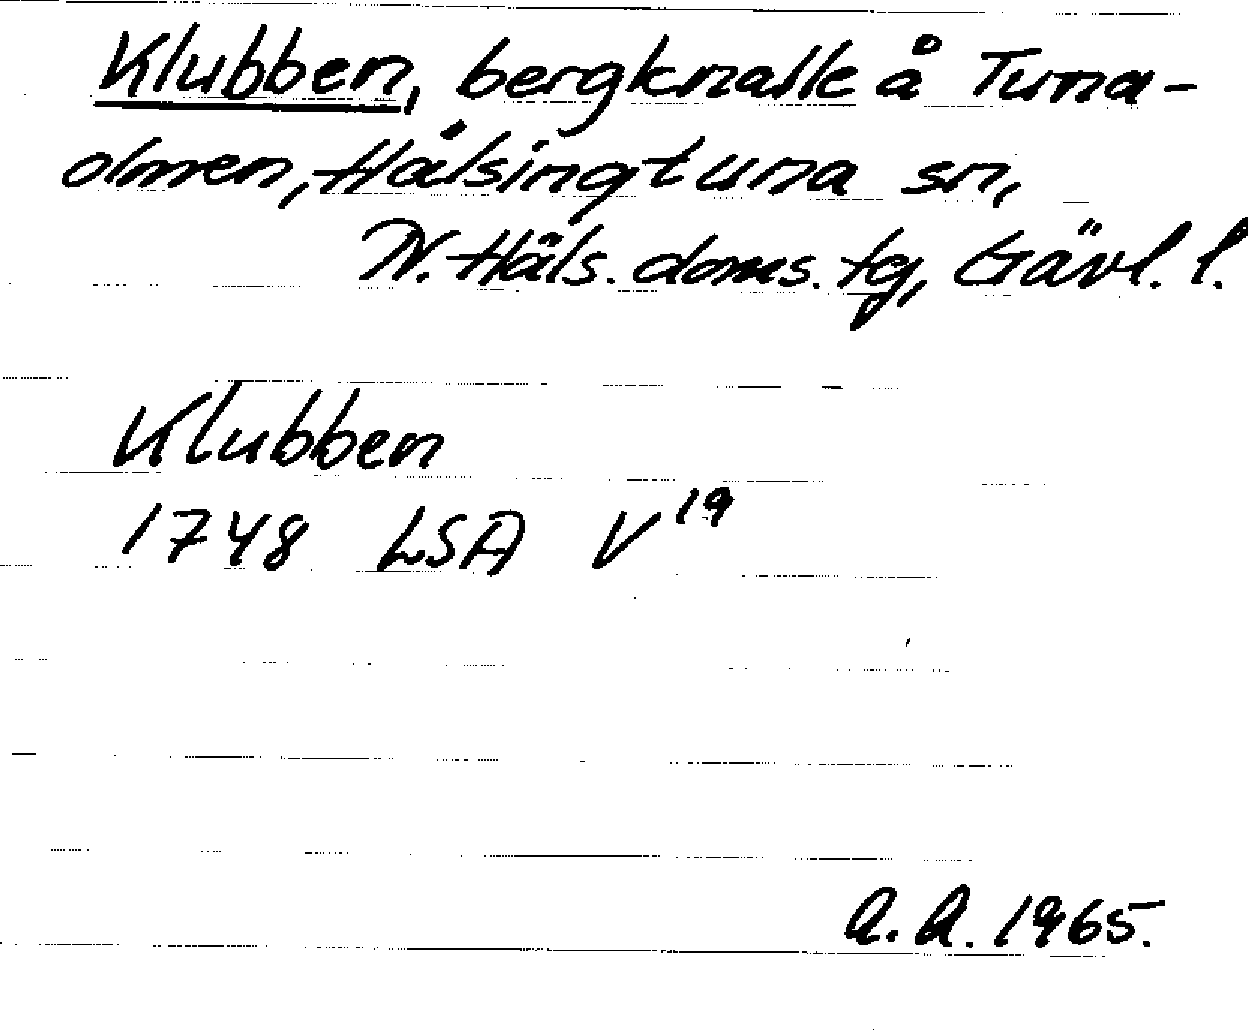 Klubben, bergknalle å Tuna-
olmen, Hälsingtuna sn,
N. Häls. doms. tg, Gävl. l.
Klubben
1748 LSA V¹⁹
A.A. 1965.